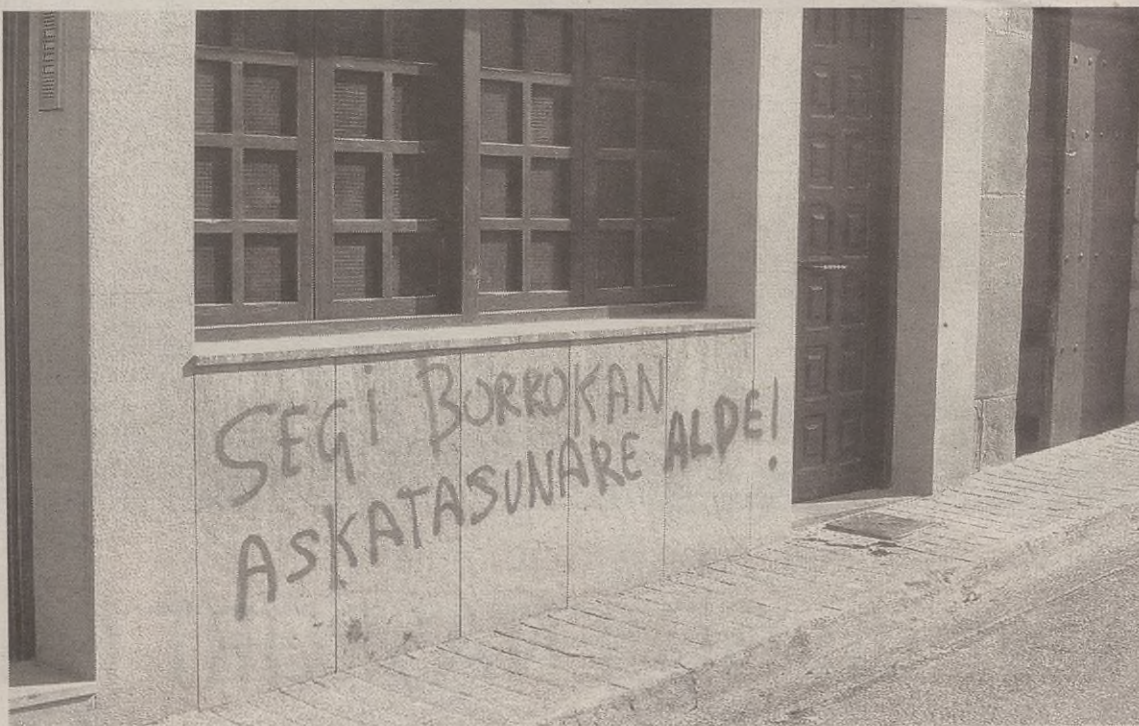 SEGi BORROKAN
ASKATASUNARE ALDE!